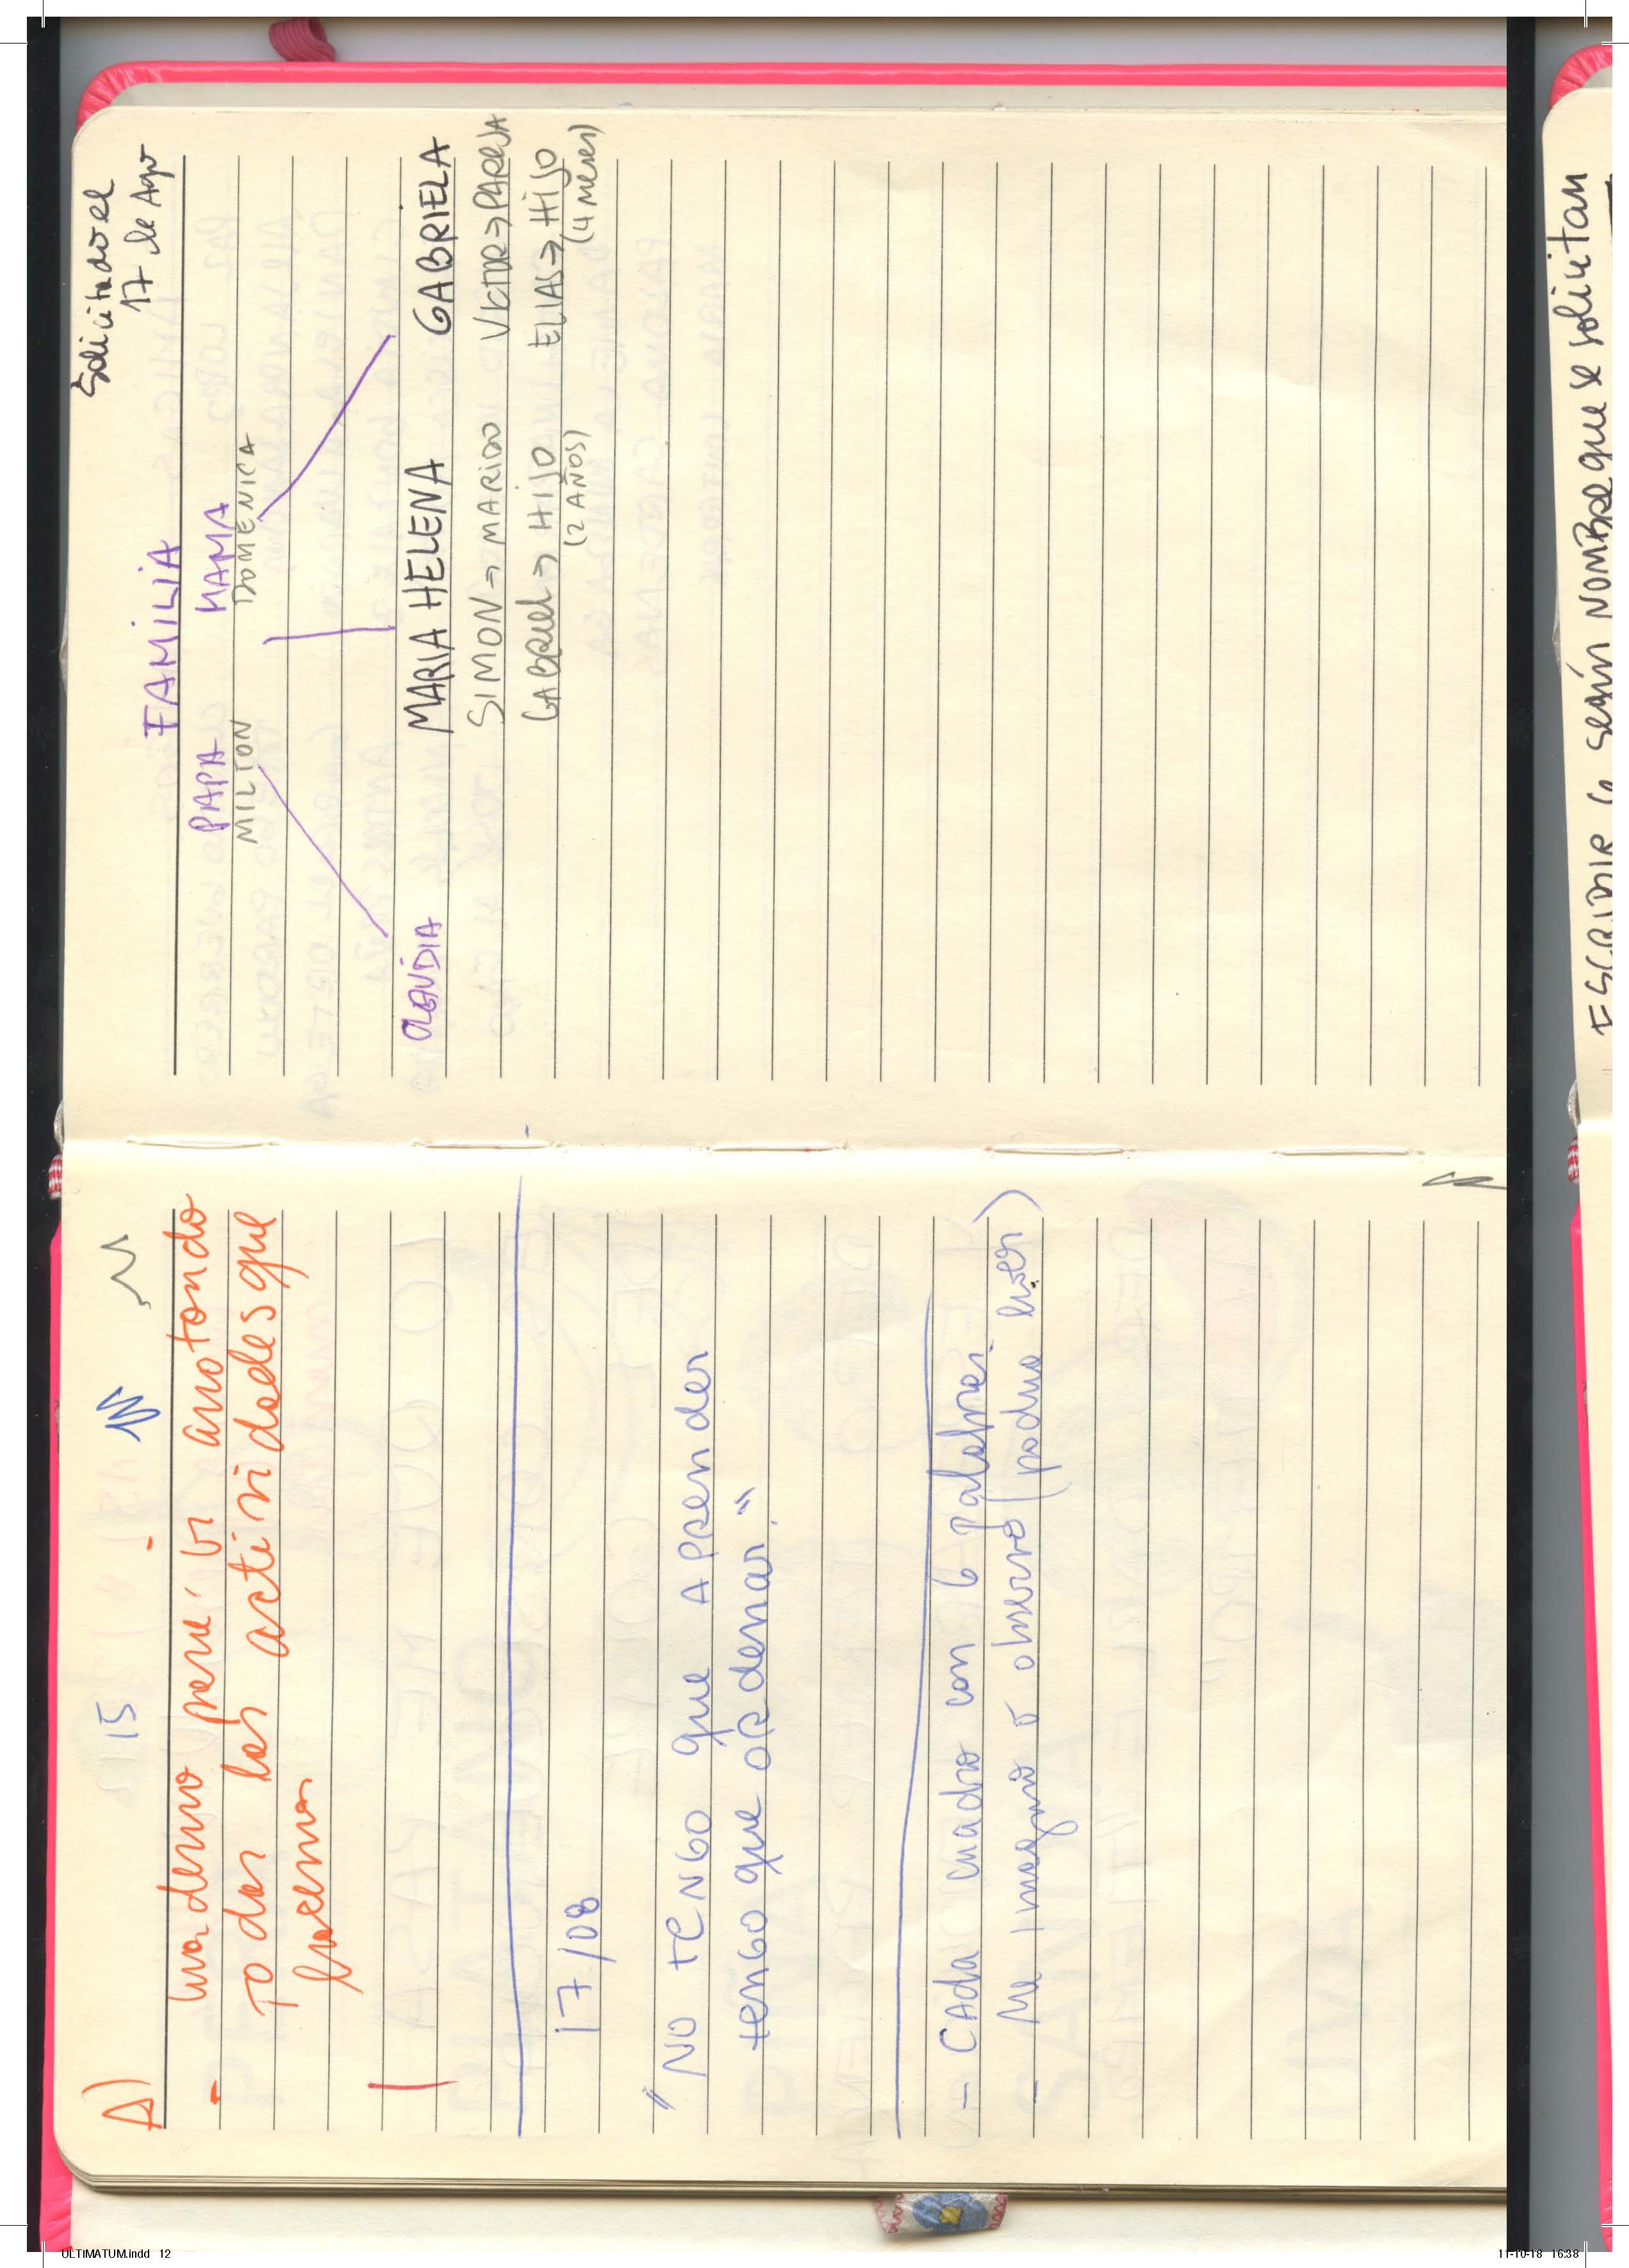 A)
15
- cuaderno para ir anotando
todas las actividades que
hacemos
17/08
"NO TENGO que APRENDER
tengo que ORdenar."
- CAda cuadro con 6 palabras
- Me imagino o observo (podria leer)
Solicitado el
17 de Ago
FAMiLiA
PAPA MAMA
MILTON DOMENICA
CLAUDIA MARIA HELENA GABRIELA
SIMON => MARIDO VICTOR => PAREJA
GABRIEL => HIJO ELIAS => HIJO
(2 AÑOS) (4 Meses)
ESCRIBIR 6 según NOMBRE que se solicitan
ULTIMATUM.indd 12
11-10-18 16:38